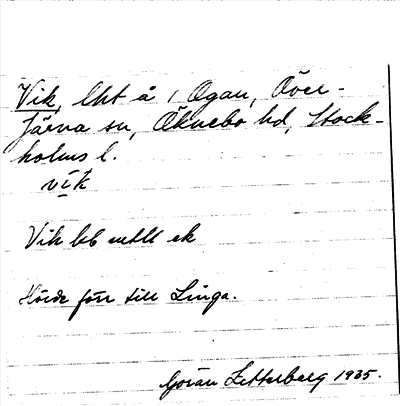 Vik, lht å 1 Ogan, Över-
Järna sn, Öknebo hd, Stock-
holms l.
vik
Vik bb enllt ek
Hörde förr till Linga.
Göran Zetterberg 1935.